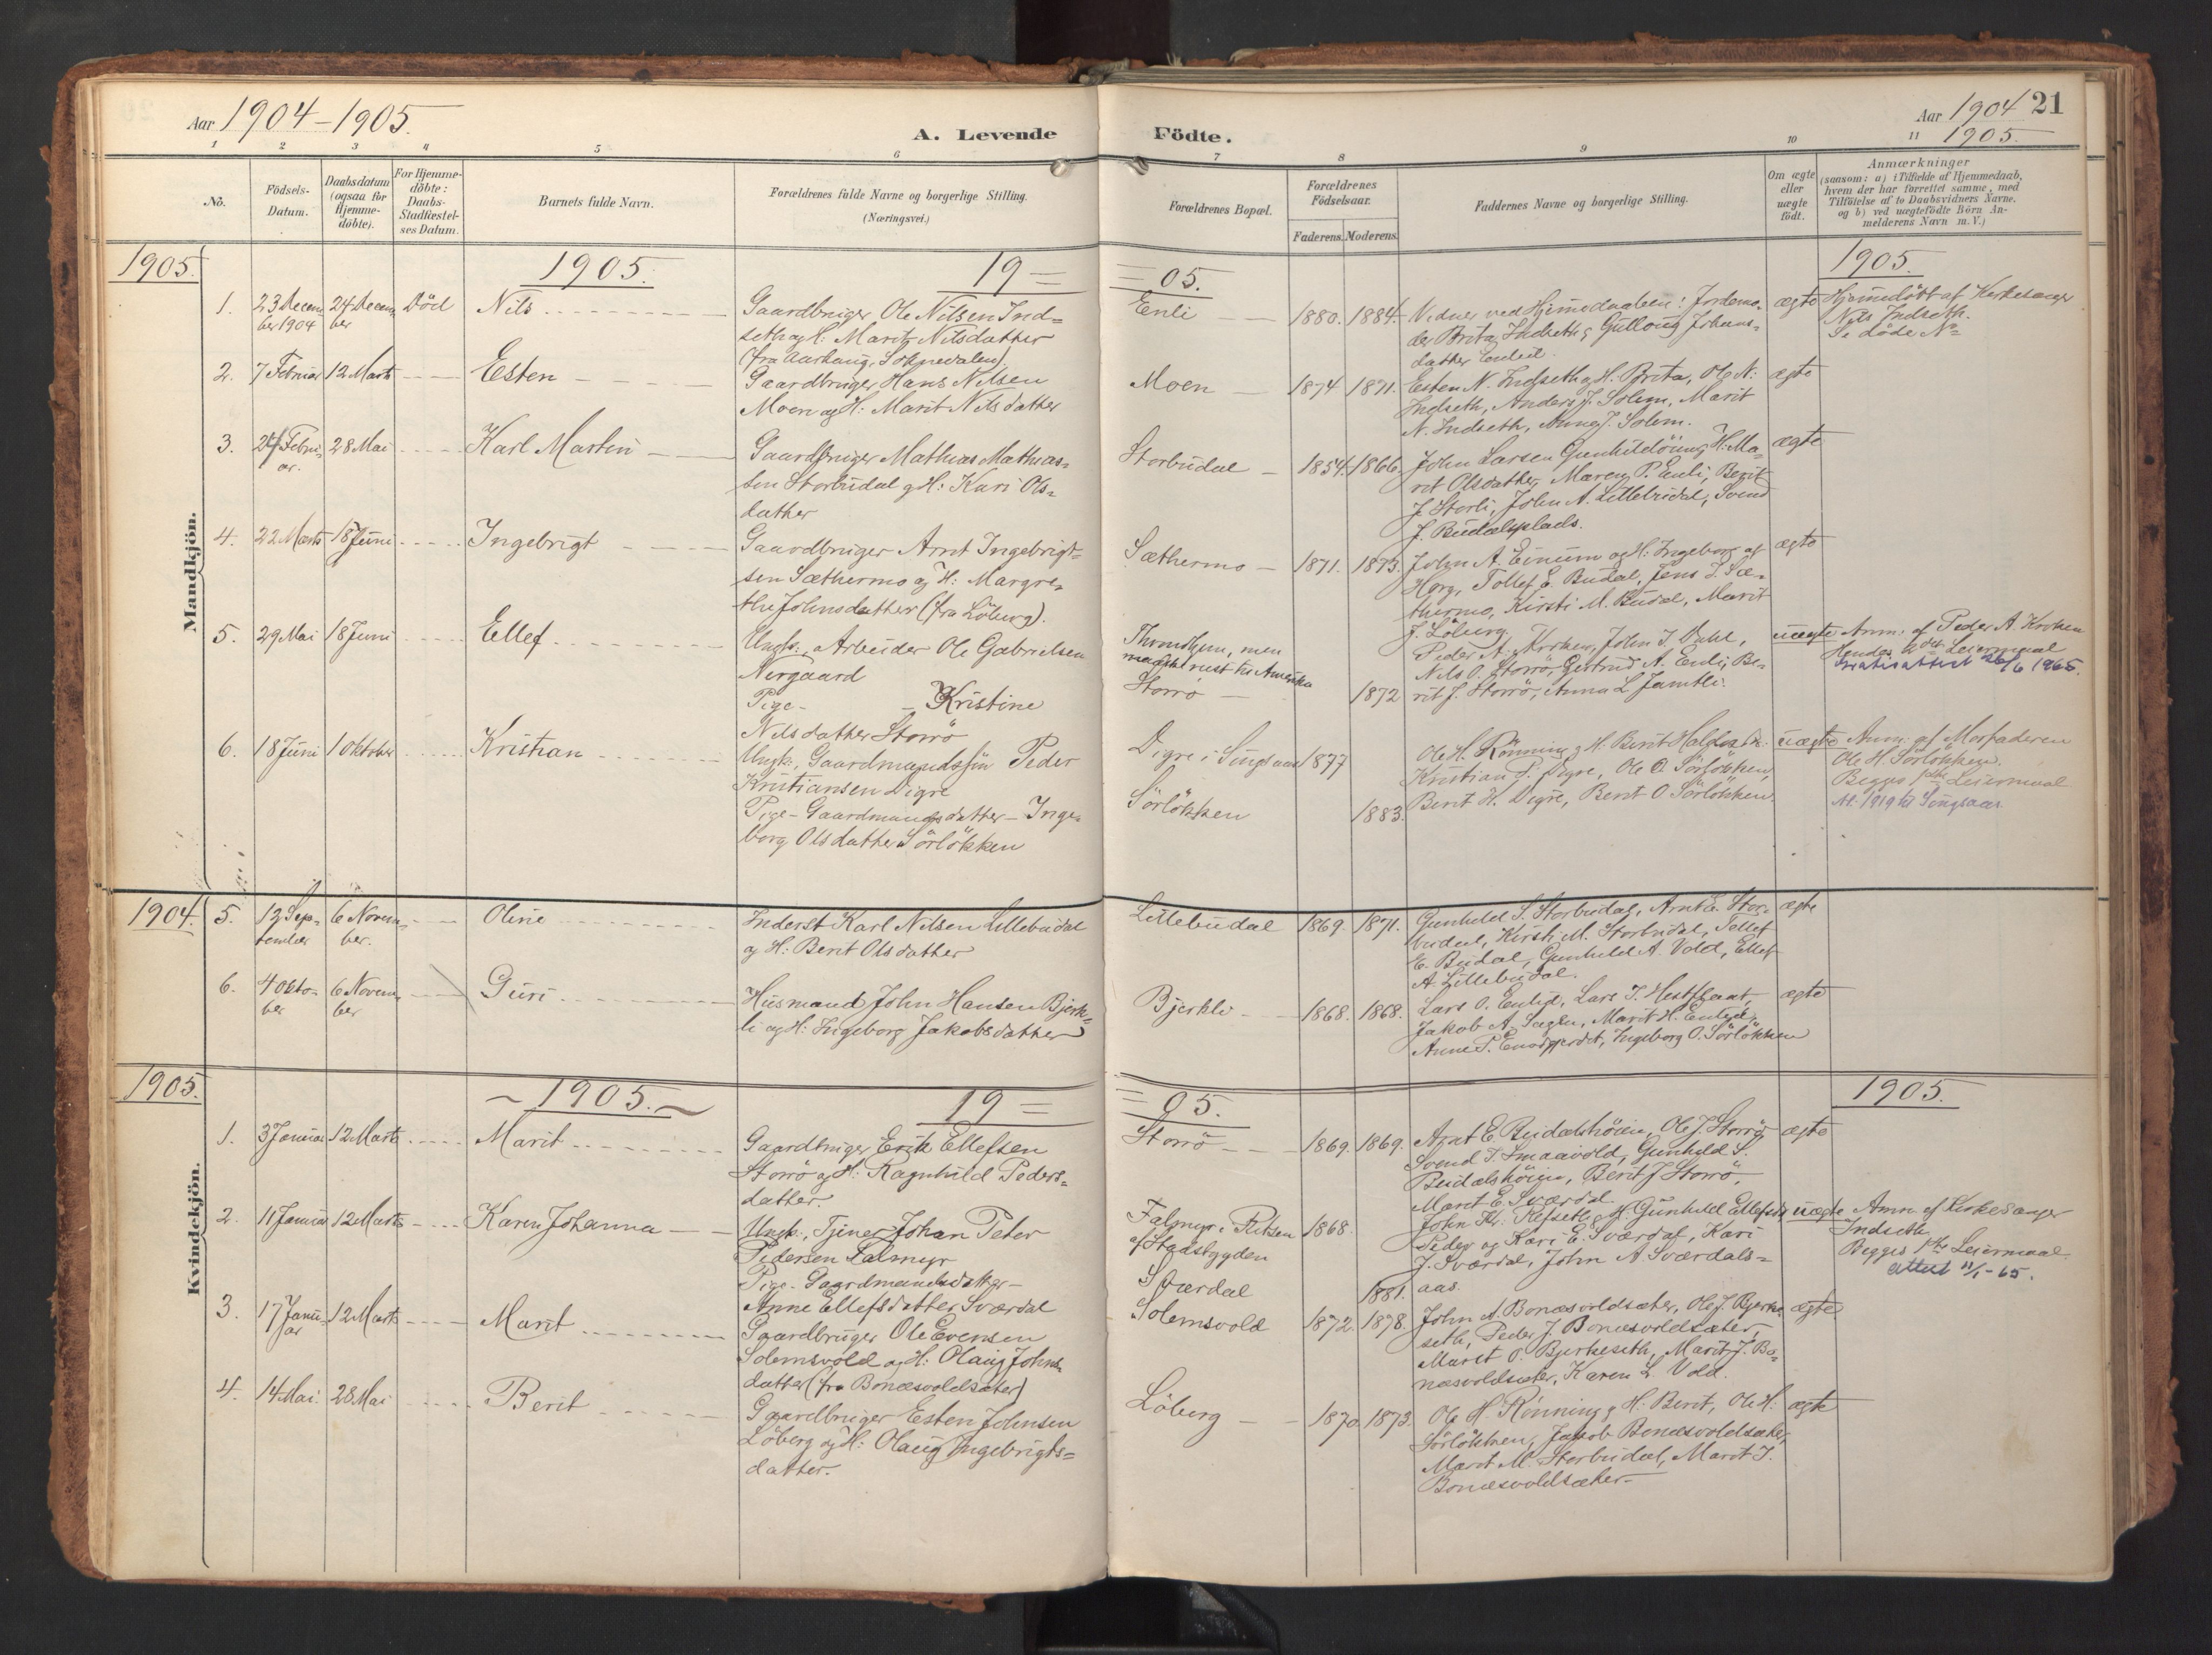 Aar 1904-1905.
A. Levende Födte.
Aar 1904 21
1905.
1 2 3 4 5 6 7 8 9 10 11
No.
Födsels-
Datum.
Daabsdatum
(ogsaa for
Hjemme-
döbte).
For Hjemme-
döbte:
Daabs-
Stadfæstel-
ses Datum.
Barnets fulde Navn.
Forældrenes fulde Navne og borgerlige Stilling.
(Næringsvei.)
Forældrenes Bopæl.
Forældrenes
Födselsaar.
Faderens. Moderens.
Faddernes Navne og borgerlige Stilling.
Om ægte
eller
uægte
födt.
Anmærkninger
(saasom: a) i Tilfælde af Hjemmedaab,
hvem der har forrettet samme, med
Tilföielse af to Daabsvidners Navne.
og b) ved uægtefödte Börn An-
melderens Navn m.V.)
Mandkjön.
1905. 1905. 19= =05. 1905.
1. 23 Decem-
ber 1904
24 Decem-
ber
Död
Nils
Gaardbruger Ole Nilsen Ind=
seth og H: Marit Nilsdatter
(fra Aarhaug, Soknedalen)
Enli
1880. 1884.
Vidner ved Hjemmedaaben: Jordemo-
der Brita Indseth og Gullaug Johans-
datter Enlid.
ægte
Hjemmedöbt af Kirkesanger
Nils Indseth.
Se döde No
2. 7 Februar 12 Marts
Esten
Gaardbruger Hans Nilsen
Moen og H: Marit Nilsdatter
Moen
1874 1871.
Esten N. Indseth og H. Brita, Ole N.
Indseth, Anders J. Solem, Marit
N. Indseth, Anne J. Solem.
ægte
3. 24 Febru-
ar.
28 Mai
Karl Martin
Gaardbruger Mathias Mathias-
sen Storbudal og H: Kari Ols-
datter
Storbudal
1854. 1866.
John Larsen Gunhildöing, H: Ma-
rit Olsdatter, Maren P. Enli, Berit
J. Storli, John A. Lillebudal, Svend
J. Budalsplads.
ægte
4. 22 Marts 18 Juni
Ingebrigt
Gaardbruger Arnt Ingebrigt=
sen Sæthermo og H: Margre-
the Johnsdatter (fra Löberg).
Sæthermo
1871. 1873.
John A. Einum og H: Ingeborg af
Horg, Tollef E. Budal, Jens J. Sæ-
thermo, Kirsti M. Budal, Marit
J. Löberg
ægte
5. 29 Mai 18 Juni
Ellef
Ungk., Arbeider Ole Gabrielsen
Nergaard
Pige - Kristine
Nilsdatter Storrö
Throndhjem, men
reist til Amerika
Storrö
1872
Peder A. Kroken, John J. Dahl,
Nils O. Storrö, Gertrud A. Enli, Be-
rit J. Storrö, Anna L. Jamtli.
uægte
Anm: af Peder A. Kroken
Hendes Leiermaal
Gratisattest 26/6 1965.
6. 18 Juni 1 Oktober
Kristian
Ungk., Gaardmandssön Peder
Kristiansen Digre
Pige - Gaardmandsdatter - Inge-
borg Olsdatter Sörlökken
Digre i Singsaas
Sörlökken
1877
1883.
Ole H. Rönning og H: Berit
Kristian P. Digre, Ole O. Sörlökken,
Berit H. Digre, Berit O. Sörlökken.
uægte
Anm: af Morfaderen
Ole H. Sörlökken.
Begges Leiermaal
1919 til Singsaas.
Kvindekjön.
1904. 5. 12 Sep-
tember
6 Novem-
ber.
Oline
Inderst Karl Nilsen Lillebudal
og H: Berit Olsdatter
Lillebudal
1869. 1871.
Gunhild S. Storbudal, Arnt E. Stor-
budal, Kirsti M. Storbudal, Tollef
E. Budal, Gunhild A. Vold, Ellef
A. Lillebudal.
ægte
6. 4 Okto-
ber
6 Novem-
ber
Guri
Husmand John Hansen Bjerk-
li og H: Ingeborg Jakobsdatter
Bjerkli
1868. 1868.
Lars O. Enlid, Lars J. Hestflaat,
Jakob A. Sagen, Marit H. Enlid,
Anne P. Enodgjerdet, Ingeborg O. Sörlökken
ægte
1905. ~1905.~ 19= =05. 1905.
1. 3 Januar 12 Marts
Marit
Gaardbruger Erik Ellefsen
Storrö og H: Ragnhild Peders=
datter.
Storrö
1869. 1869.
Arnt E. Budalshöien, Ole J. Storrö,
Svend T. Smaavold, Gunhild S.
Budalshöien, Berit J. Storrö,
Marit E. Sværdal.
ægte
2. 11 Januar 12 Marts
Karen Johanna
Ungk., Tjener Johan Peter
Pedersen Falmyr
Pige - Gaardmandsdatter -
Anne Ellefsdatter Sværdal
Falmyr i Ritsen
af Stadsbygden
Sværdal
1868.
1881.
John Kr. Refseth og H Gunhild Ellefsdt
Peder og Kari E. Sværdal, Kari
J. Sværdal, John A. Sværdals=
aas.
uægte
Anm. af Kirkesanger
Indseth
Begges Leiermaal
attest 11/1-65.
3. 17 Janu-
ar
12 Marts
Marit
Gaardbruger Ole Evensen
Solemsvold og H: Olaug Johns-
datter (fra Bonæsvoldsæter)
Solemsvold
1872. 1878.
John A. Bonæsvoldsæter, Ole J. Bjerke-
seth, Peder J. Bonæsvoldsæter,
Marit O. Bjerkeseth, Marit J. Bo-
næsvoldsæter, Karen L. Vold.
ægte
4. 14 Mai. 28 Mai
Berit
Gaardbruger Esten Johnsen
Löberg og H: Olaug Ingebrigts=
datter.
Löberg
1870 1873.
Ole H. Rönning og H: Berit, Ole H.
Sörlökken, Jakob Bonæsvoldsæter,
Marit M. Storbudal, Marit J.
Bonæsvoldsæter.
ægte